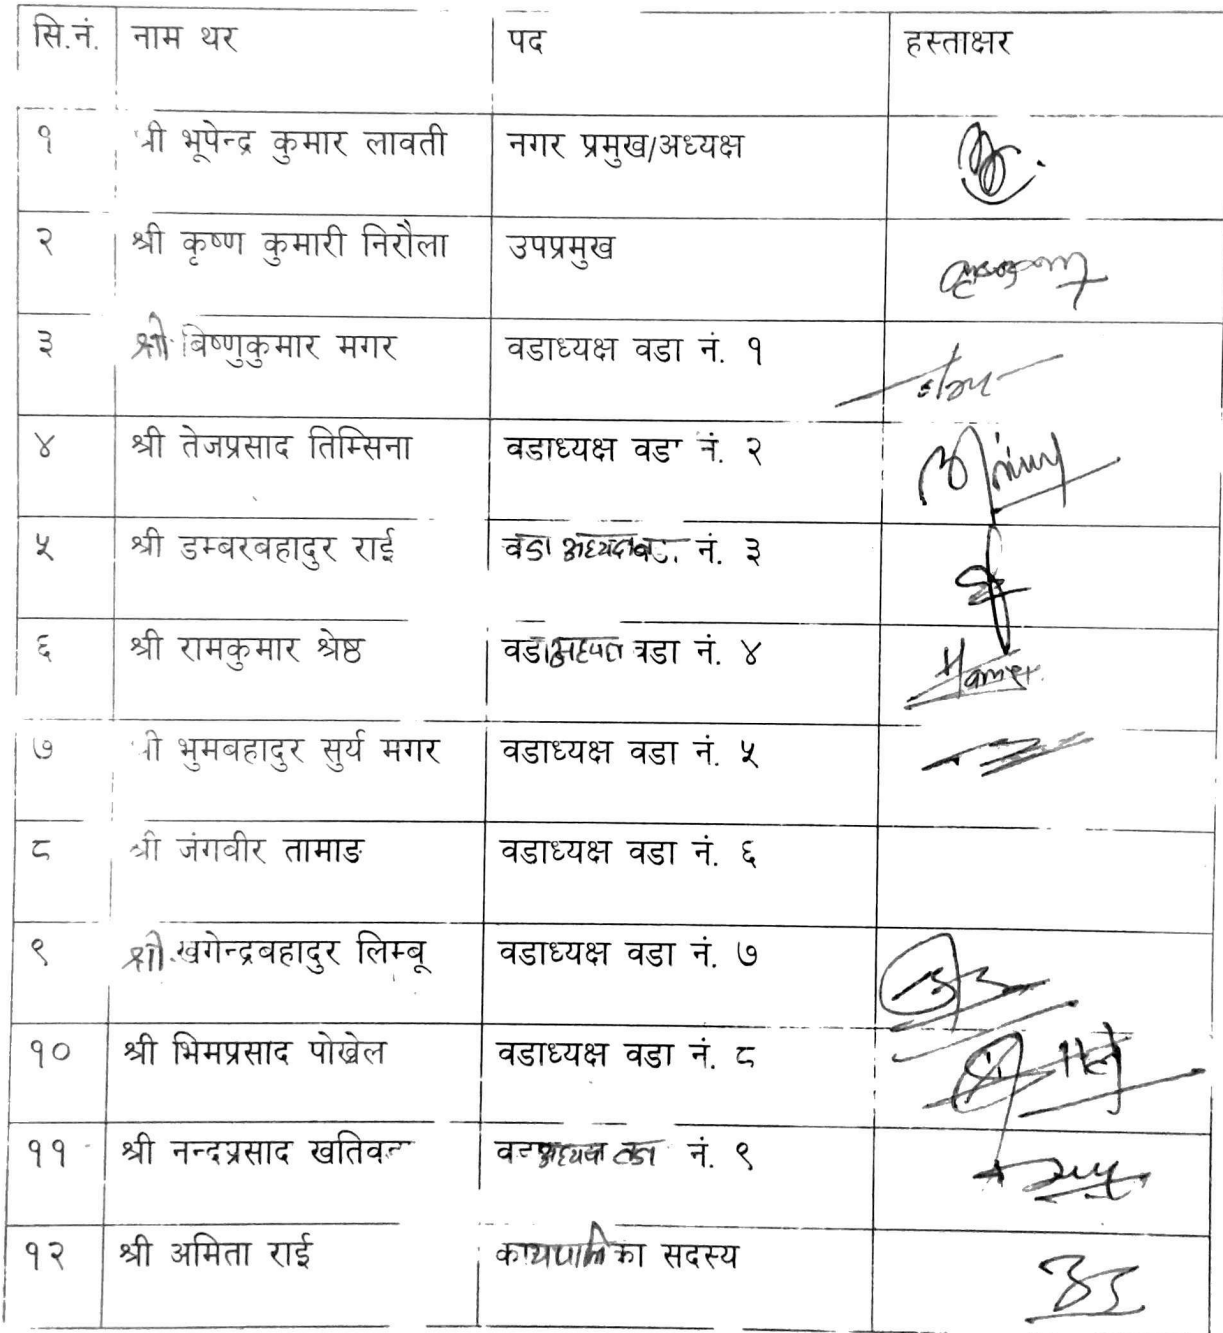 सि.नं. नाम थर पद हस्ताक्षर
१ श्री भूपेन्द्र कुमार लावती नगर प्रमुख/अध्यक्ष
२ श्री कृष्ण कुमारी निरौला उपप्रमुख
३ श्री बिष्णुकुमार मगर वडाध्यक्ष वडा नं. १
४ श्री तेजप्रसाद तिम्सिना वडाध्यक्ष वडा नं. २
५ श्री डम्बरबहादुर राई वडा अध्यक्ष वडा नं. ३
६ श्री रामकुमार श्रेष्ठ वडा अध्यक्ष वडा नं. ४
७ श्री भुमबहादुर सुर्य मगर वडाध्यक्ष वडा नं. ५
८ श्री जंगवीर तामाङ वडाध्यक्ष वडा नं. ६
९ श्री खगेन्द्रबहादुर लिम्बू वडाध्यक्ष वडा नं. ७
१० श्री भिमप्रसाद पोखेल वडाध्यक्ष वडा नं. ८
११ श्री नन्दप्रसाद नं. ९
१२ श्री अमिता राई कार्यपालिका सदस्य